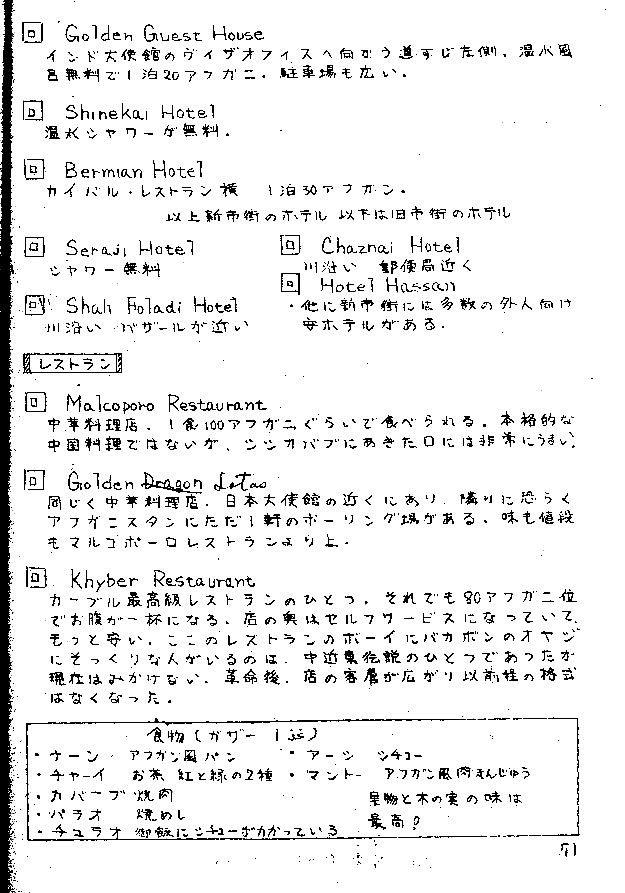 回 Golden Guest House
インド大使館のヴィザオフィスへ向かう道すじ左側、温水風
呂無料で1泊20アフガニ、駐車場も広い。
回 Shinekai Hotel
温水シャワーが無料。
回 Bermian Hotel
カイバル・レストラン横 1泊30アフガン。
以上新市街のホテル 以下は旧市街のホテル
回 Seraji Hotel
シャワー無料
回 Shah Foladi Hotel
川沿い バザールが近い
回 Chaznai Hotel
川沿い 郵便局近く
回 Hotel Hassan
・他に新市街には多数の外人向け
安ホテルがある。
レストラン
回 Malcoporo Restaurant
中華料理店、1食100アフガニぐらいで食べられる。本格的な
中国料理ではないが、シシカバブにあきた口には非常にうまい。
回 Golden Dragon Lotus
同じく中華料理店、日本大使館の近くにあり、隣りに恐らく
アフガニスタンにただ1軒のボーリング場がある、味も値段
もマルコポーロレストランより上。
回 Khyber Restaurant
カーブル最高級レストランのひとつ、それでも80アフガニ位
でお腹が一杯になる、店の奥はセルフサービスになっていて、
もっと安い、ここのレストランのボーイにバカボンのオヤジ
にそっくりな人がいるのは、中近東伝説のひとつであったが
現在はみかけない、革命後、店の客層が広がり以前程の格式
はなくなった。
食物(ガザー
・ナーン アフガン風パン
・チャーイ お茶 紅と緑の2種
・カバーブ 焼肉
・パラオ 焼めし
・チュラオ 御飯にシチューがかかっている
・アーシ シチュー
・マントー アフガン風肉まんじゅう
果物と木の実の味は
最高?